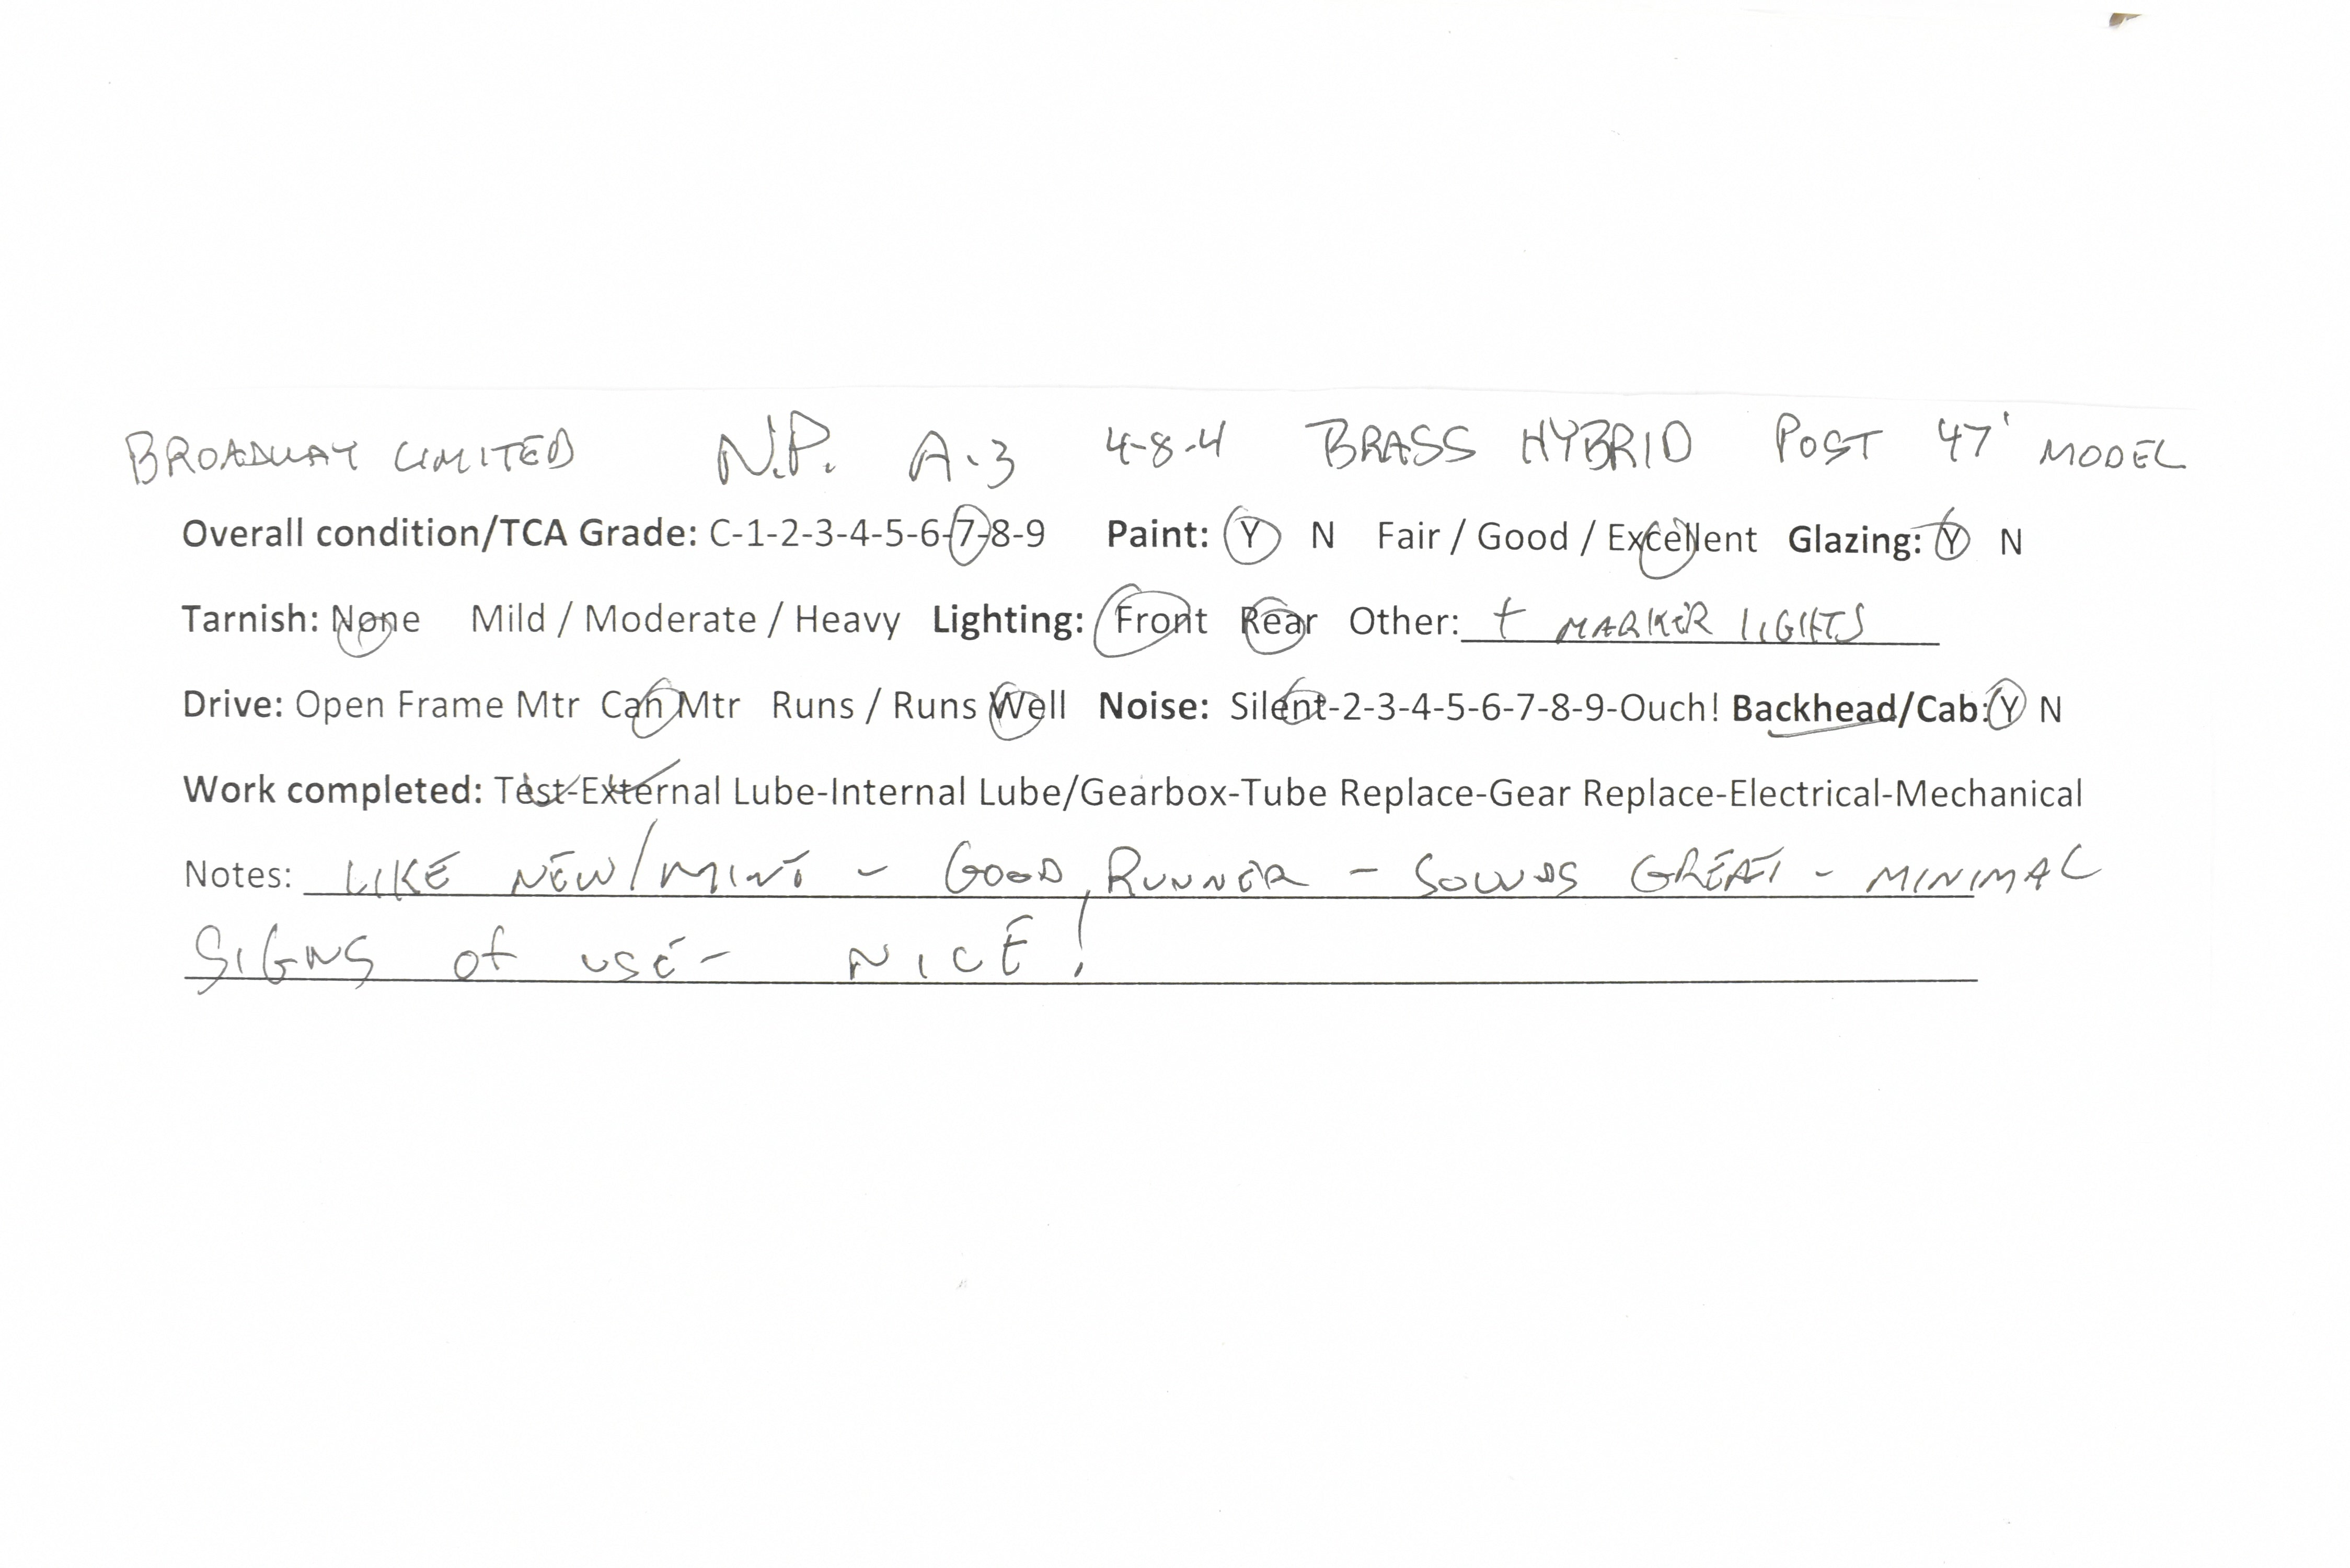 BROADWAY LIMITED N.P. A-3 4-8-4 BRASS HYBRID POST 47' MODEL
Overall condition/TCA Grade: C-1-2-3-4-5-6-7-8-9 Paint: Y N Fair / Good / Excellent Glazing: Y N
Tarnish: None Mild / Moderate / Heavy Lighting: Front Rear Other: + MARKER LIGHTS
Drive: Open Frame Mtr Can Mtr Runs / Runs Well Noise: Silent-2-3-4-5-6-7-8-9-Ouch! Backhead/Cab: Y N
Work completed: Test-External Lube-Internal Lube/Gearbox-Tube Replace-Gear Replace-Electrical-Mechanical
Notes: LIKE NEW/MINT - GOOD RUNNER - SOUNDS GREAT - MINIMAL
SIGNS of USE - NICE!